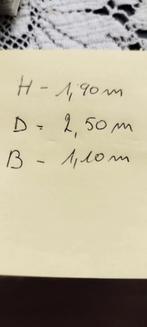 H - 1,90m
D = 2,50m
B - 1,10m